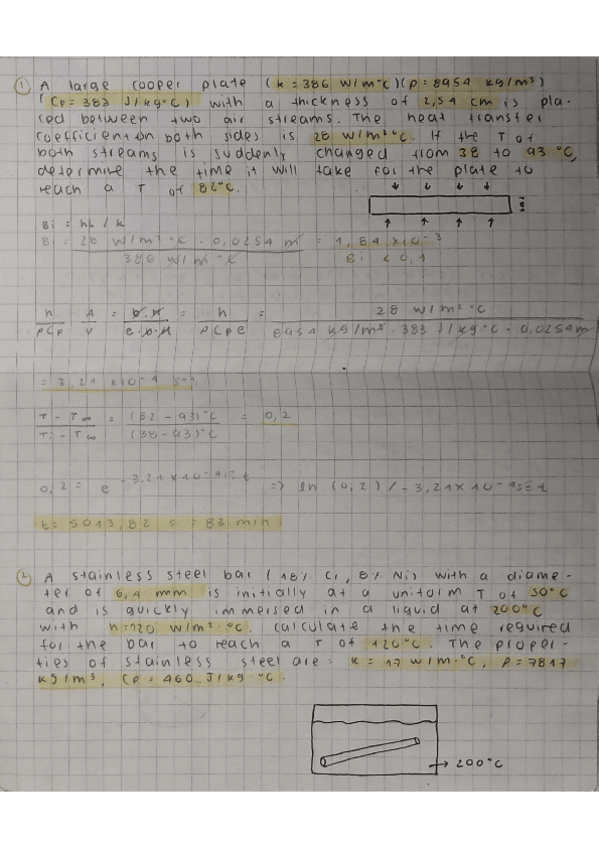 ① A large cooper plate (k = 386 W/m°C)(ρ = 8954 kg/m³)
(Cp = 383 J/kg°C) with a thickness of 2,54 cm is pla-
ced between two air streams. The heat transfer
coefficient on both sides is 28 W/m²°C. If the T of
both streams is suddenly changed from 38 to 93 °C,
determine the time it will take for the plate to
reach a T of 82°C.
Bi = hL / k
Bi = 28 W/m²·°C · 0,0254 m / 386 W/m·°C = 1,84 x10⁻³
Bi < 0,1
h/ρCp A/V = = h/ρCpe = 28 W/m²·°C / 8954 kg/m³ · 383 J/kg°C · 0,0254m
= 3,21 x10⁻⁴ s-1
T - T∞ / Ti - T∞ = (82 - 93)°C / (38 - 93)°C = 0,2
0,2 = e - 3,21 x 10⁻⁴ t => ln (0,2) / - 3,21 x 10⁻⁴ = t
t = 5013,82 s 83 min
② A stainless steel bar (18% Cr, 8% Ni) with a diame-
ter of 6,4 mm is initially at a uniform T of 30°C
and is quickly immersed in a liquid at 200°C
with h=120 W/m²·°C. Calculate the time required
for the bar to reach a T of 120°C. The proper-
ties of stainless steel are: k = 17 W/m·°C, ρ = 7817
kg/m³, Cp = 460 J/kg·°C.
200°C